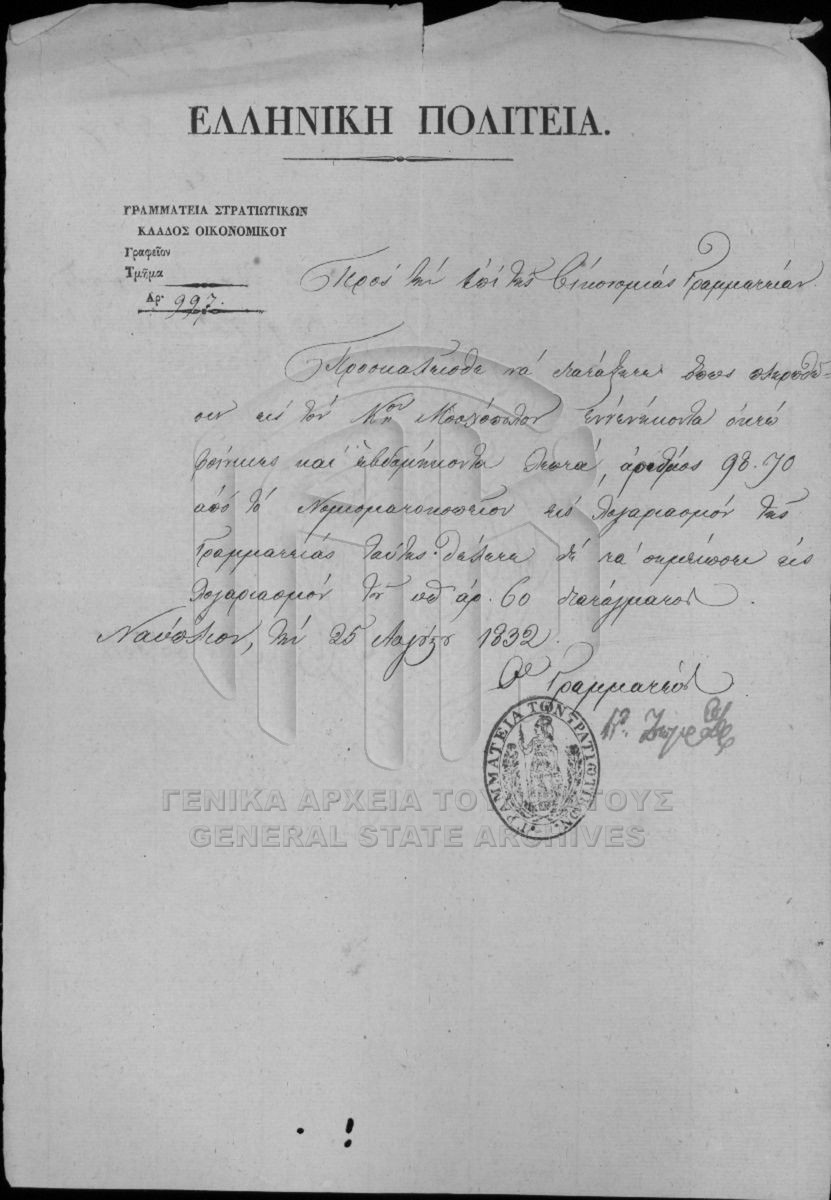 ΕΛΛΗΝΙΚΗ ΠΟΛΙΤΕΙΑ.
ΓΡΑΜΜΑΤΕΙΑ ΣΤΡΑΤΙΩΤΙΚΩΝ
ΚΛΑΔΟΣ ΟΙΚΟΝΟΜΙΚΟΥ
Γραφεῖον
Τμῆμα
Αρ. 997.
Πρὸς τὴν ἐπὶ τῆς Οἰκονομίας Γραμματείαν.
Προσκαλεῖσθε νὰ διατάξητε ὅπως
εἰς τὸν ἐννενήκοντα ὀκτὼ
φοίνικες καὶ ἑβδομήκοντα λεπτά, ἀριθμὸς 98.70
ἀπὸ τὸ Νομισματοκοπεῖον εἰς λογαριασμὸν τῆς
Γραμματείας ταύτης. θέλετε δὲ τὰ σημειώσει εἰς
λογαριασμὸν τοῦ ὑπ ἀρ. 60 διατάγματος.
Ναύπλιον, τὴν 25 1832.
Ὁ Γραμματεὺς
ΓΡΑΜΜΑΤΕΙΑ ΤΩΝ ΣΤΡΑΤΙΩΤΙΚΩΝ
ΓΕΝΙΚΑ ΑΡΧΕΙΑ ΤΟΥ ΚΡΑΤΟΥΣ
GENERAL STATE ARCHIVES